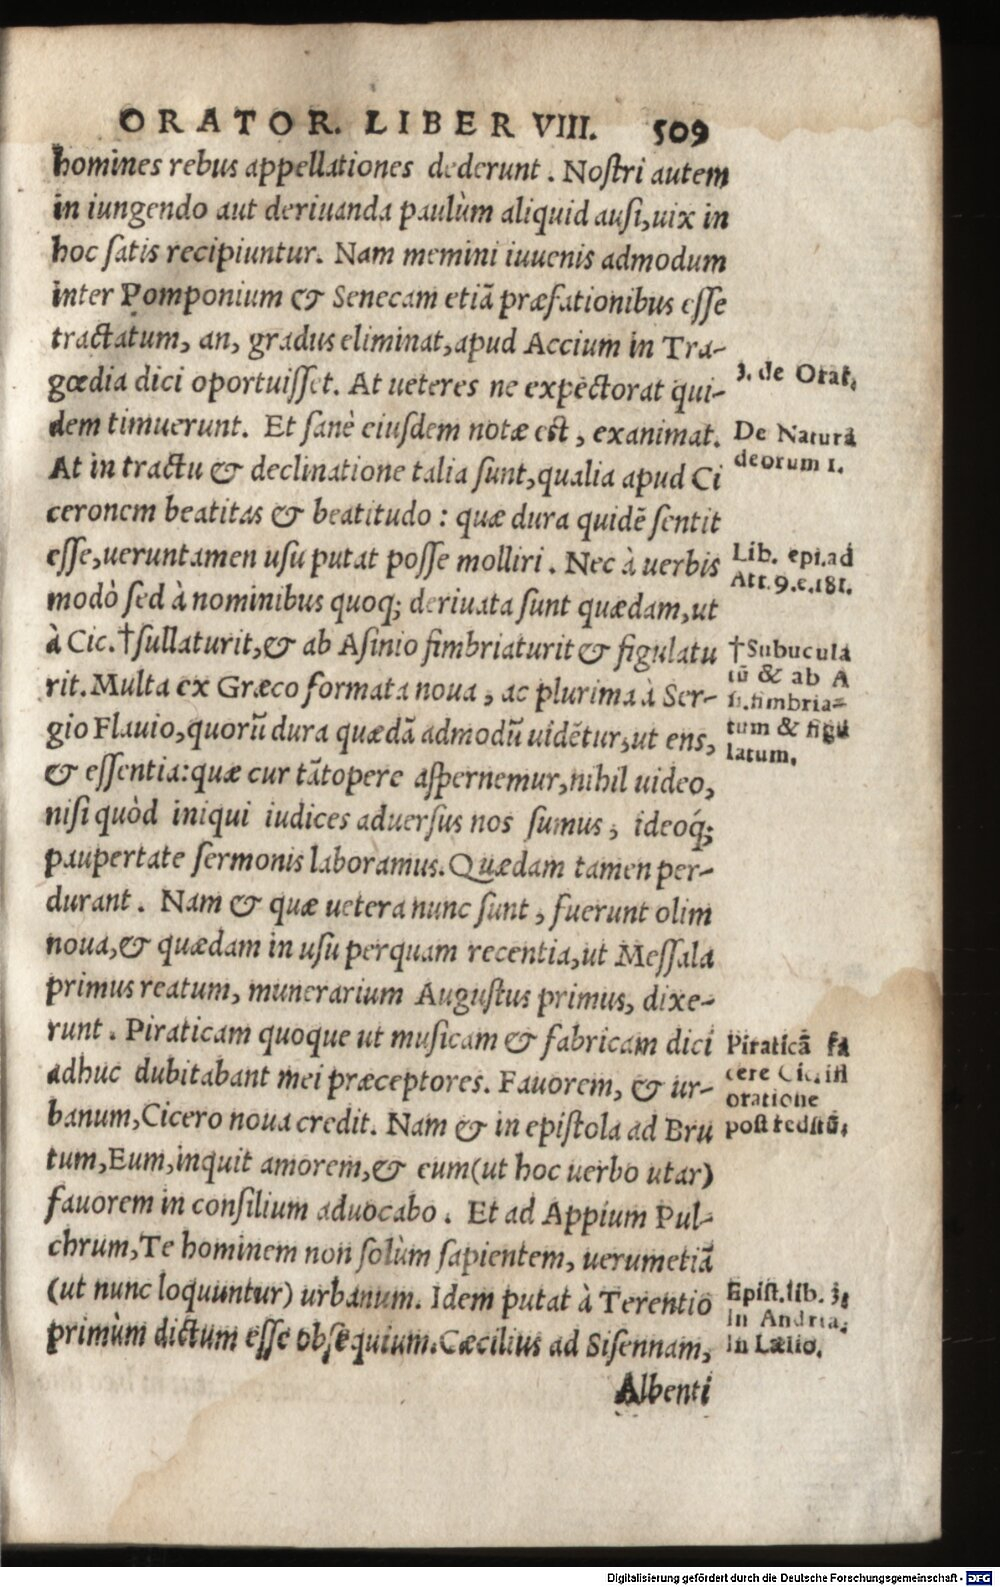 ORATOR. LIBER VIII. 509
homines rebus appellationes dederunt. Nostri autem
in iungendo aut deriuanda paulùm aliquid ausi, uix in
hoc satis recipiuntur. Nam memini iuuenis admodum
inter Pomponium & Senecam etiã præfationibus esse
tractatum, an, gradus eliminat, apud Accium in Tra-
gœdia dici oportuisset. At ueteres ne expectorat qui-
dem timuerunt. Et sanè eiusdem notæ est, exanimat.
At in tractu & declinatione talia sunt, qualia apud Ci
ceronem beatitas & beatitudo: quæ dura quidẽ sentit
esse, ueruntamen usu putat posse molliri. Nec à uerbis
modò sed à nominibus quoq; deriuata sunt quædam, ut
à Cic. †sullaturit, & ab Asinio fimbriaturit & figulatu
rit. Multa ex Græco formata noua, ac plurima à Ser-
gio Flauio, quorũ dura quædã admodũ uidẽtur, ut ens,
& essentia: quæ cur tãtopere aspernemur, nihil uideo,
nisi quòd iniqui iudices aduersus nos sumus, ideoq́;
paupertate sermonis laboramus. Quædam tamen per-
durant. Nam & quæ uetera nunc sunt, fuerunt olim
noua, & quædam in usu perquam recentia, ut Messala
primus reatum, munerarium Augustus primus, dixe-
runt. Piraticam quoque ut musicam & fabricam dici
adhuc dubitabant mei præceptores. Fauorem, & ur-
banum, Cicero noua credit. Nam & in epistola ad Bru
tum, Eum, inquit amorem, & eum (ut hoc uerbo utar)
fauorem in consilium aduocabo. Et ad Appium Pul-
chrum, Te hominem non solùm sapientem, uerumetiã
(ut nunc loquuntur) urbanum. Idem putat à Terentio
primùm dictum esse obsequium. Cæcilius ad Sisennam,
Albenti
3. de Orat.
De Naturã
deorum 1.
Lib. epi. ad
Att. 9. e. 181.
†Subucula
tũ & ab A
si. fimbria=
tum & figu
latum.
Piraticã fa
cere Cic. in
oratione
post reditũ.
Epist. lib. 3.
In Andria.
In Lælio.
Digitalisierung gefördert durch die Deutsche Forschungsgemeinschaft - DFG